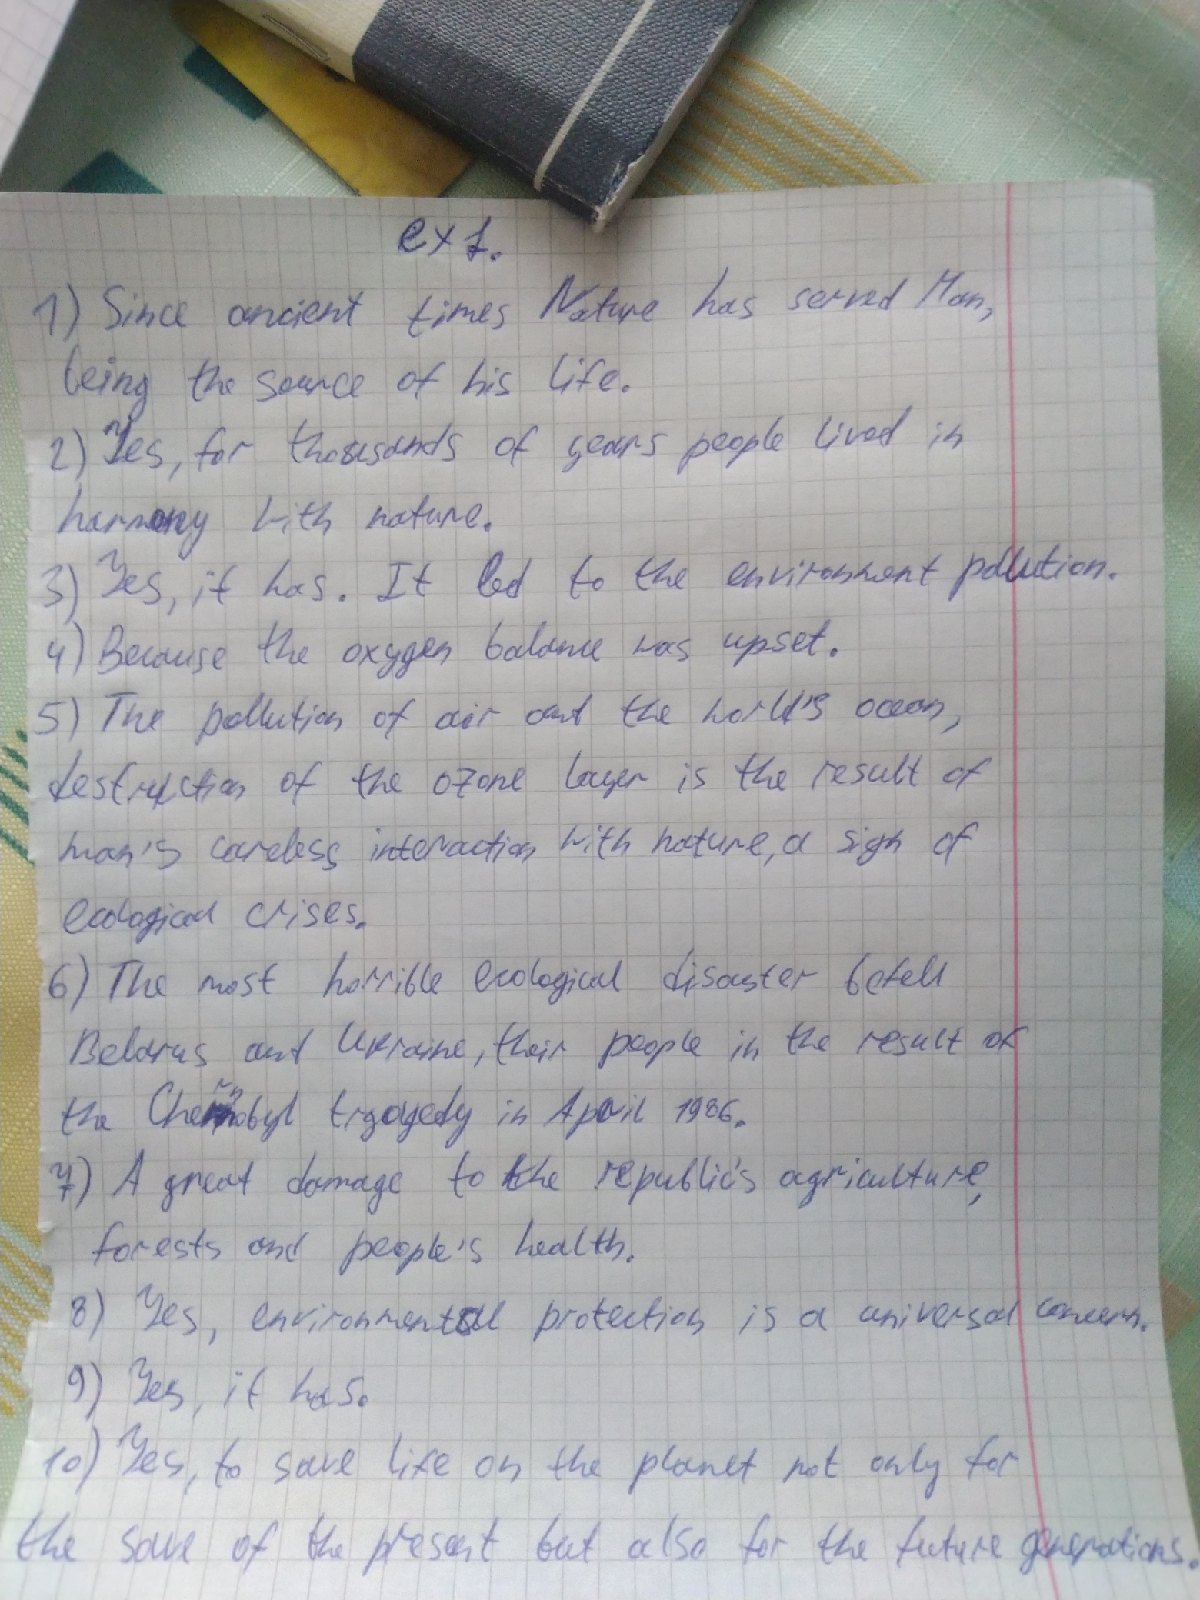 ex 1.
1) Since ancient times Nature has served Man,
being the source of his life.
2) Yes, for thousands of years people lived in
harmony with nature.
3) Yes, it has. It led to the environment pollution.
4) Because the oxygen balance was upset.
5) The pollution of air and the world's ocean,
destruction of the ozone layer is the result of
man's careless interaction with nature, a sign of
ecological crises.
6) The most horrible ecological disaster befell
Belarus and Ukraine, their people in the result of
the Chernobyl tragedy in April 1986.
7) A great damage to the republic's agriculture,
forests and people's health.
8) Yes, environmental protection is a universal concern.
9) Yes, it has.
10) Yes, to save life on the planet not only for
the save of the present but also for the future generations.